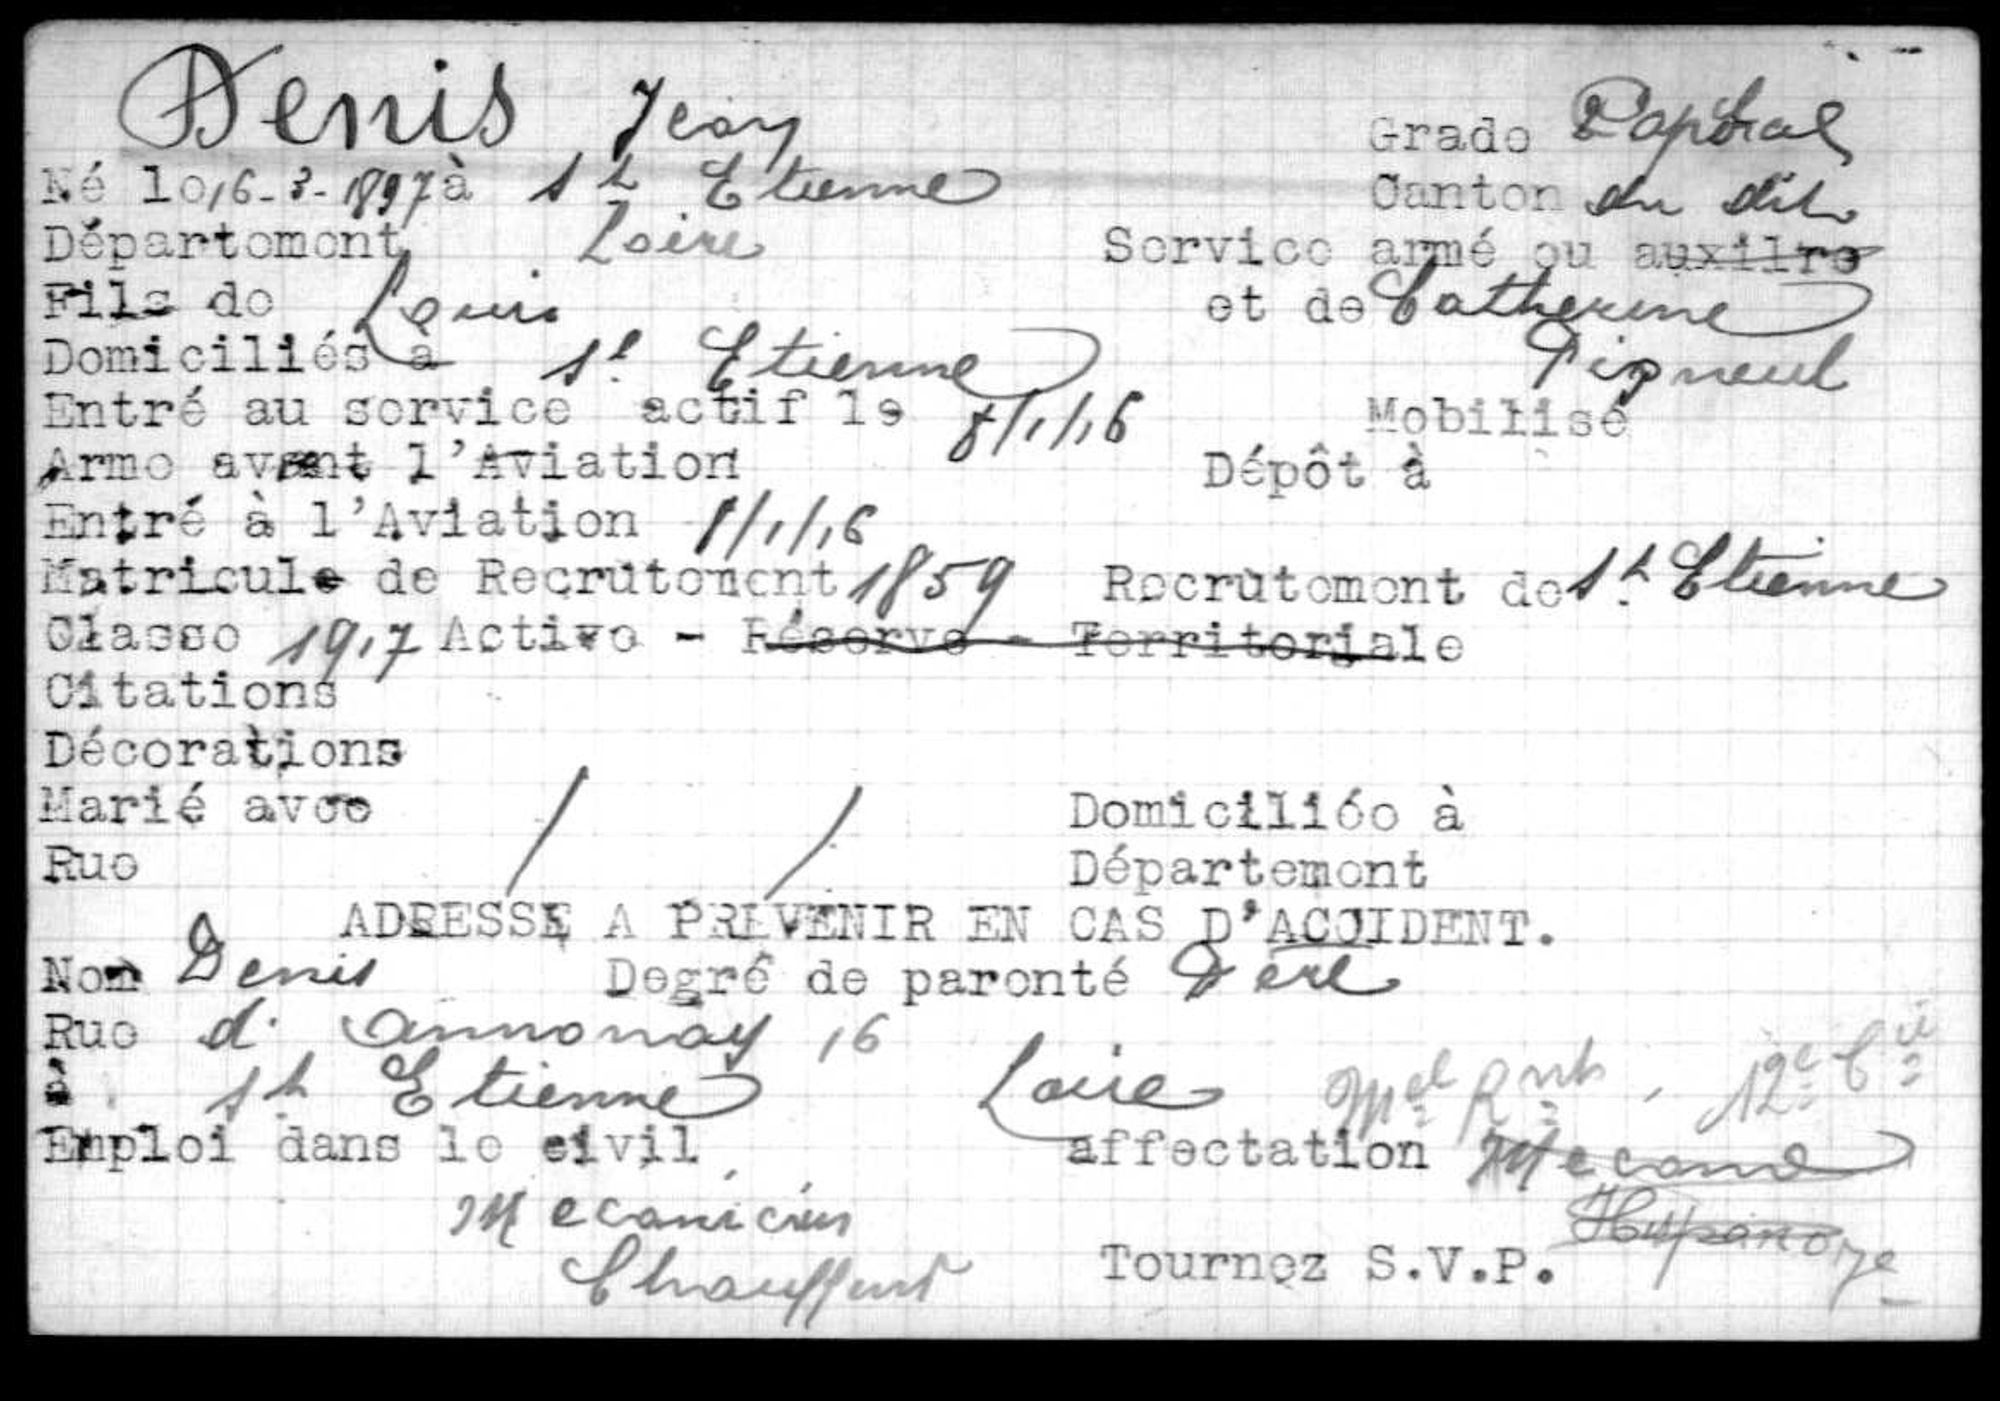 Denis Jean Grade Caporal
Né le 16-3-1897 à St Etienne Canton du dit
Département Loire Service armé ou auxilre
Fils de Louis et de Catherine
Domiciliés à St Etienne
Entré au service actif le 8/1/16 Mobilisé
Arme avant l'Aviation Dépôt à
Entré à l'Aviation 8/1/16
Matricule de Recrutement 1859 Recrutement de St Etienne
Classe 1917 Active - Réserve - Territoriale
Citations
Décorations
Marié avec / / Domiciliée à
Rue Département
ADRESSE A PREVENIR EN CAS D'ACCIDENT.
Nom Denis Degré de parenté Père
Rue d'annonay 16
à St Etienne Loire 12e Cie
Emploi dans le civil affectation Mecano
Mecanicien
Chauffeur Tournez S.V.P.